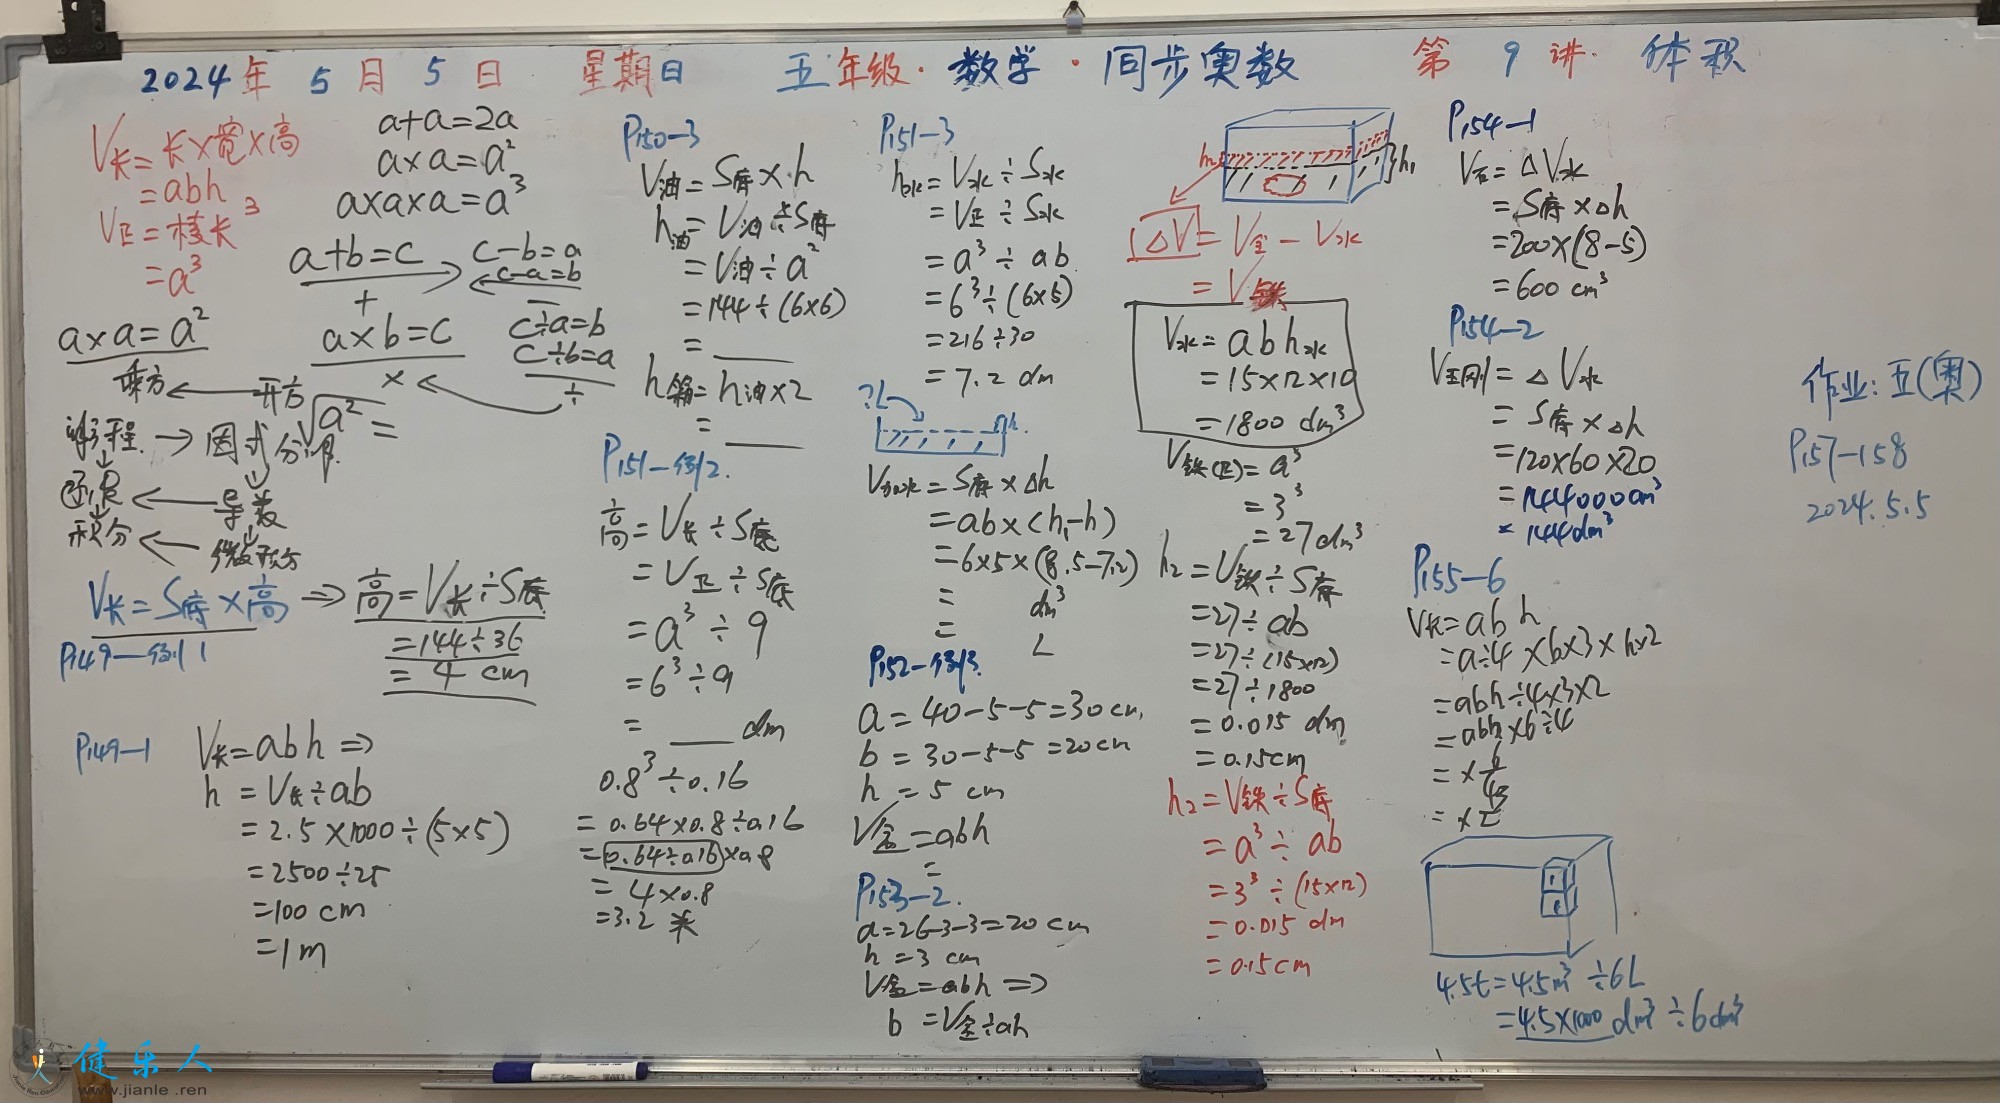 2024年 5月5日 星期日 五年级·数学·同步奥数 第9讲·体积
V长=长×宽×高
=abh
V正=棱长³
=a³
a+a=2a
a×a=a²
a×a×a=a³
a+b=c
+
c-b=a
c-a=b
—
a×a=a²
乘方
a×b=c
×
c÷a=b
c÷b=a
÷
开方
√a²=
解方程 → 因式分解
还原 ← 导数
积分 ← 微积分
V长=S底×高 ⇒ 高=V长÷S底
=144÷36
=4 cm
P149-例1
P149-1
V长=abh ⇒
h=V长÷ab
=2.5×1000÷(5×5)
=2500÷25
=100 cm
=1m
P150-3
V油=S底×h
h油=V油÷S底
=V油÷a²
=144÷(6×6)
=
h箱=h油×2
=
P151-例2.
高=V长÷S底
=V正÷S底
=a³÷9
=6³÷9
= dm
0.8³÷0.16
=0.64×0.8÷0.16
=0.64÷0.16×0.8
=4×0.8
=3.2米
P151-3
h水=V水÷S水
=V正÷S水
=a³÷ab
=6³÷(6×5)
=216÷30
=7.2 dm
?L
h
V加水=S底×Δh
=ab×(h₁-h)
=6×5×(8.5-7.2)
= dm³
= L
P152-例3.
a=40-5-5=30cm
b=30-5-5=20cm
h=5 cm
V盒=abh
=
P153-2.
a=26-3-3=20cm
h=3 cm
V盒=abh ⇒
b=V盒÷ah
h₂
h₁
ΔV=V全-V水
=V铁
V水=abh水
=15×12×10
=1800 dm³
V铁(正)=a³
=3³
=27dm³
h₂=V铁÷S底
=27÷ab
=27÷(15×12)
=27÷1800
=0.015 dm
=0.15cm
h₂=V铁÷S底
=a³÷ab
=3³÷(15×12)
=0.015 dm
=0.15cm
P154-1
V石=ΔV水
=S底×Δh
=200×(8-5)
=600 cm³
P154-2
V金刚=ΔV水
=S底×Δh
=120×60×20
=144000cm³
=144dm³
P155-6
V长=abh
=a÷4×b×3×h×2
=abh÷4×3×2
=abh×6÷4
4.5t=4.5m³÷6L
=4.5×1000dm³÷6dm³
作业:五(奥)
P157-158
2024.5.5
健乐人
www.jianle.ren